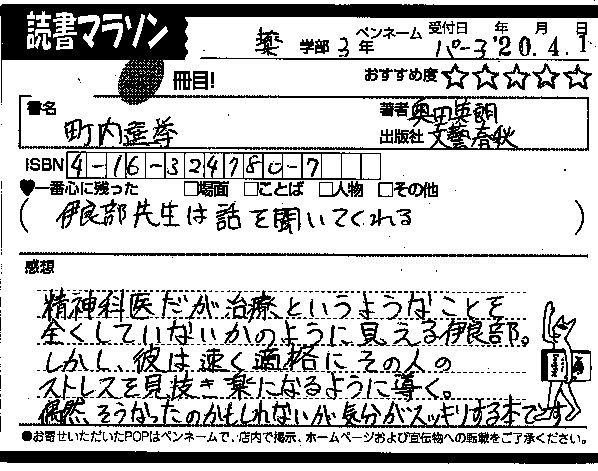 読書マラソン
薬 学部 3年 ペンネーム パーコ 受付日 '20年.4月.1日
冊目! おすすめ度 ☆☆☆☆☆
書名 町内選挙 著者 奥田英朗
出版社 文藝春秋
ISBN 4-16-324780-7
♥一番心に残った □場面 □ことば □人物 □その他
(伊良部先生は話を聞いてくれる)
感想
精神科医だが治療というようなことを
全くしていないかのように見える伊良部。
しかし、彼は速く適格にその人の
ストレスを見抜き楽になるように導く。
偶然、そうなったのかもしれないが気分がスッキリする本です
●お寄せいただいたPOPはペンネームで、店内で掲示、ホームページおよび宣伝物への転載をご了承ください。